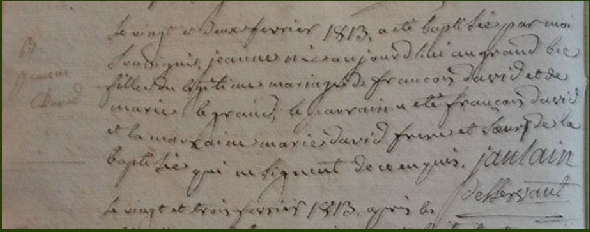 Le vingt et deux fevrier 1813, a eté baptisée par moi
B.
soussigné, jeanne née aujourd'hui au grand bec
fille du légitime mariage de francois david et de
David
marie legrand, le parrain a eté francois david
et la marraine marie david frere et soeur de la
baptisée qui ne signent de ce enquis. jaulain
desservant
Le vingt et trois fevrier 1813, après le